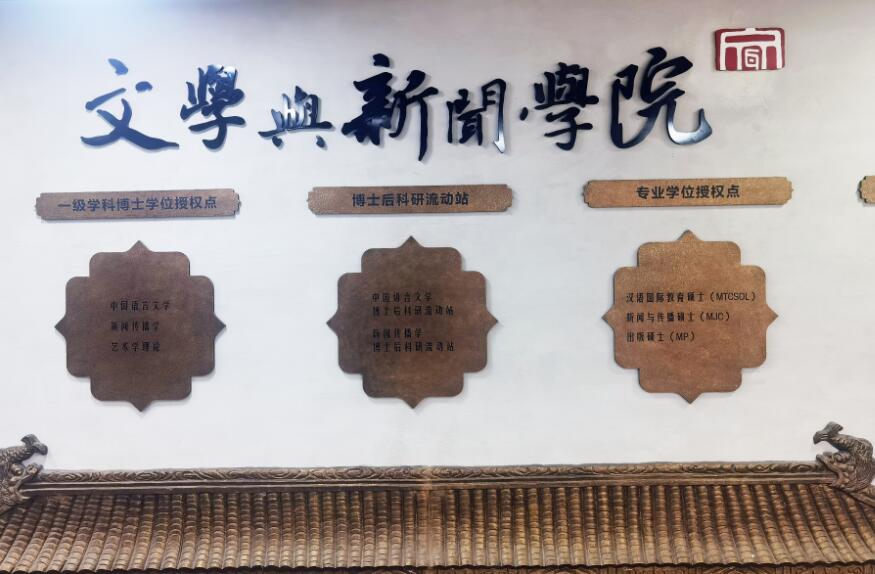 文學與新聞學院
一级学科博士学位授权点
中国语言文学
新闻传播学
艺术学理论
博士后科研流动站
中国语言文学
博士后科研流动站
新闻传播学
博士后科研流动站
专业学位授权点
汉语国际教育硕士（MTCSOL）
新闻与传播硕士（MJC）
出版硕士（MP）